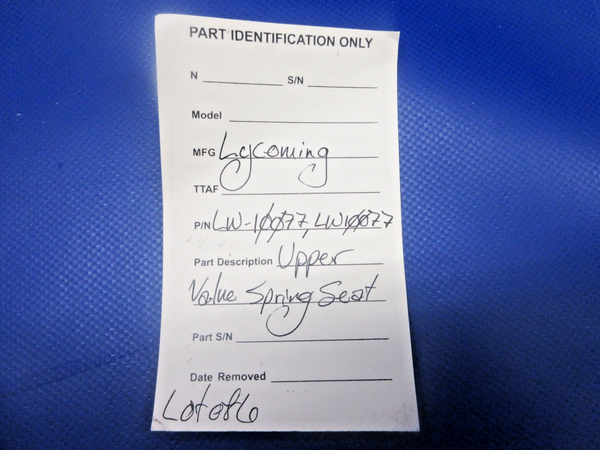 PART IDENTIFICATION ONLY
N S/N
Model
MFG Lycoming
TTAF
P/N LW-10077, LW10077
Part Description Upper
Valve Spring Seat
Part S/N
Date Removed
Lot of 6